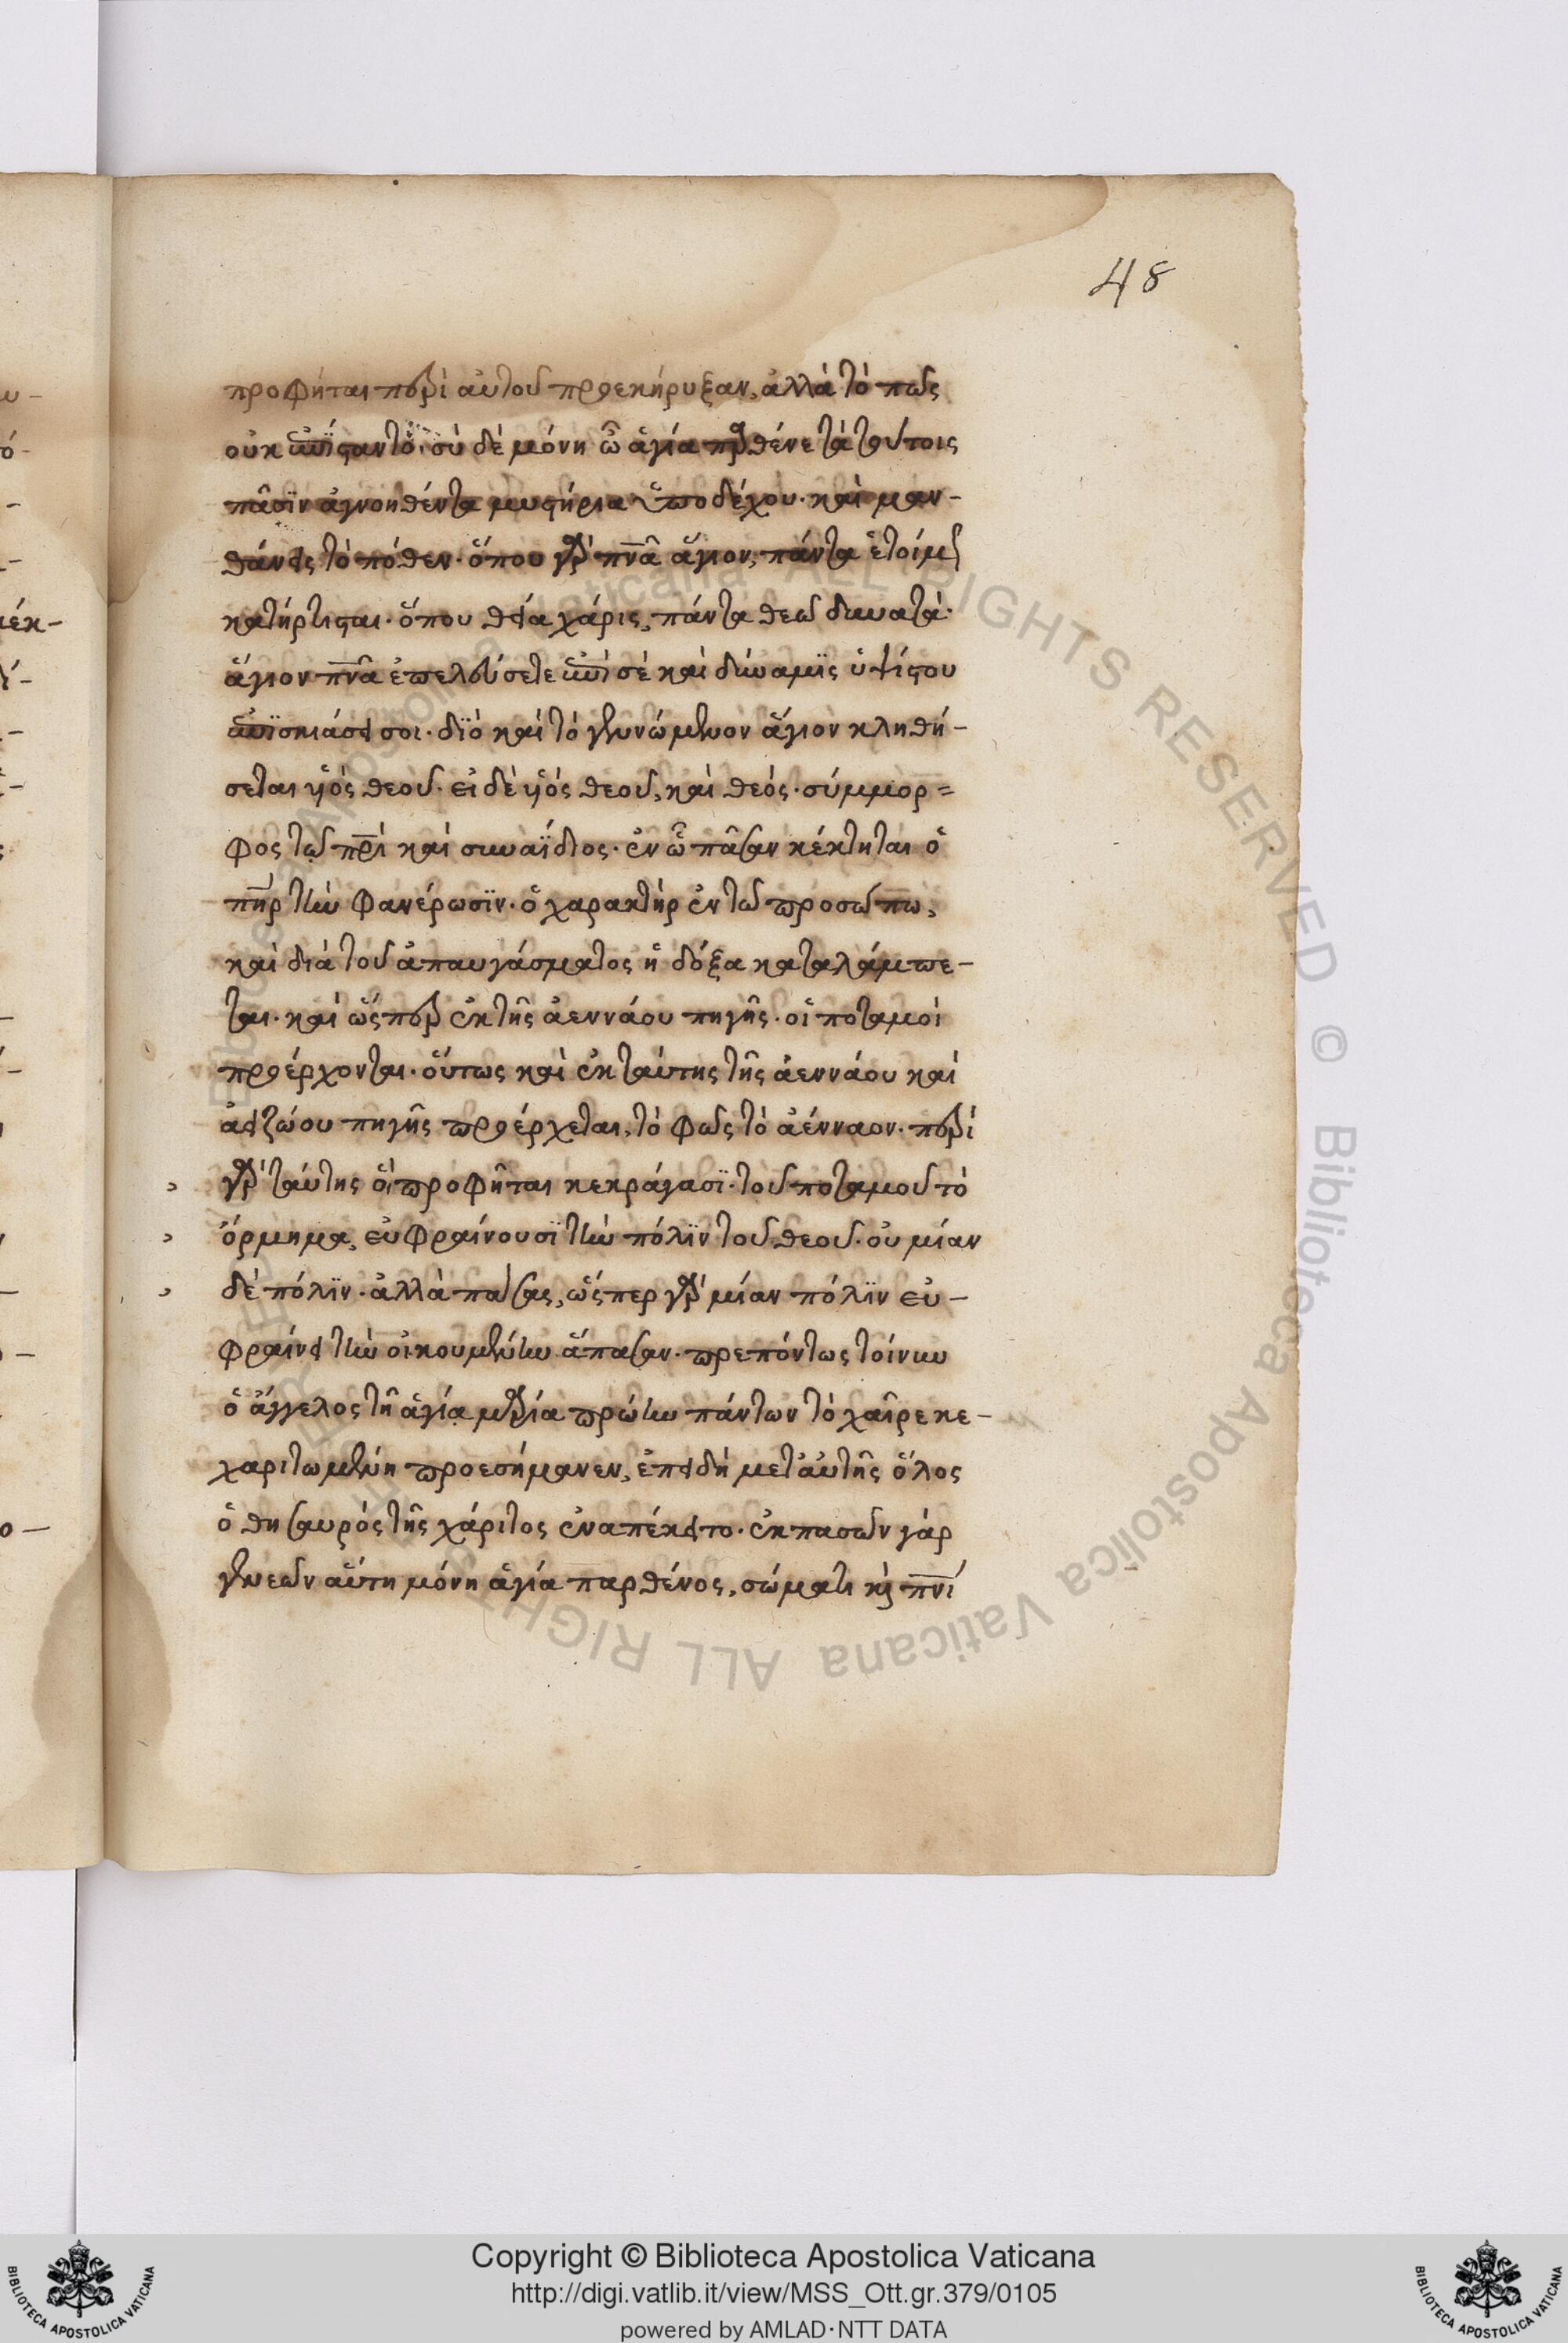 48
προφήται περὶ αὐτοῦ προεκήρυξαν, ἀλλὰ τὸ πῶς
οὐκ ἐπίσαντο· σὺ δὲ μόνη ὦ ἁγία πρθένε τὰ τούτοις
πᾶσϊν ἀγνοηθέντα μυστήρια ὑποδέχου· καὶ μαν-
θάνεις τὸ πόθεν· ὅπου γὰρ πνᾶ ἅγιον, πάντα ἑτοίμως
κατήρτισται· ὅπου θεία χάρις, πάντα θεῶ δυνατὰ·
ἅγιον πνᾶ ἐπελεύσετε ἐπὶ σὲ καὶ δύναμϊς ὑψίστου
ἐπϊσκιάσει σοι· δϊὸ καὶ τὸ γεννώμενον ἅγιον κληθή-
σεται υἱὸς θεοῦ· εἰ δὲ υἱός θεοῦ, καὶ θεός· σύμμορ=
φος τῷ πρὶ καὶ συναΐδιος· ἐν ὧ πᾶσαν κέκτηται ὁ
πὴρ τὴν φανέρωσϊν· ὁ χαρακτὴρ ἐν τῶ προσώπω,
καὶ διὰ τοῦ ἀπαυγάσματος ἡ δόξα καταλάμπε-
ται· καὶ ὥσπερ ἐκ τῆς ἀεννάου πηγῆς· οἱ ποταμοὶ
προέρχονται· οὕτως καὶ ἐκ ταύτης τῆς ἀεννάου καὶ
ἀειζώου πηγῆς προέρχεται, τὸ φῶς τὸ ἀένναον· περὶ
γὰρ ταύτης οἱ προφῆται κεκράγασϊ· τοῦ ποταμοῦ τὸ
ὅρμημα, εὐφραίνουσϊ τὴν πόλϊν τοῦ θεοῦ· οὐ μίαν
δὲ πόλϊν· ἀλλὰ πάσας, ὥσπερ γὰρ μίαν πόλϊν εὐ-
φραίνει τὴν οἰκουμένην ἅπασαν· πρεπόντως τοίνυν
ὁ ἄγγελος τῆ ἁγία μαρία πρώτην πάντων τὸ χαῖρε κε-
χαριτωμένη προεσήμανεν, ἐπειδὴ μετ᾽ αὐτῆς ὅλος
ὁ θησαυρὸς τῆς χάριτος ἐναπέκειτο· ἐκ πασῶν γὰρ
γενεῶν αὕτη μόνη ἁγία παρθένος, σώματι κὶ πνὶ
Copyright © Biblioteca Apostolica Vaticana
http://digi.vatlib.it/view/MSS_Ott.gr.379/0105
powered by AMLAD·NTT DATA